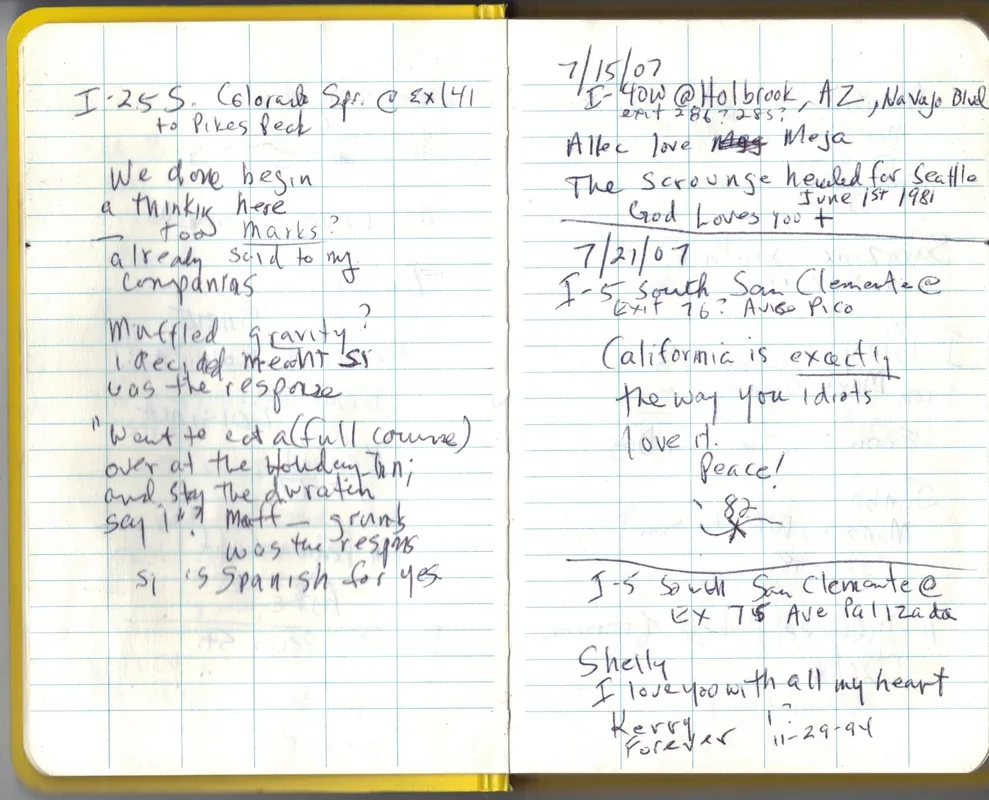 I-25 S. Colorado Spr. @ Ex 141
to Pikes Peck
We done begin
a thinkin here
— too marks?
already said to my
companias
Muffled gravity?
i decided meant si
was the response
"Want to eat a (full course)
over at the Holiday Inn;
and stay the duration
say i"? Muff — grunts
was the respons
si is Spanish for yes.
7/15/07
I-40W @ Holbrook, AZ, Navajo Blvd
exit 286? 285?
Allec love Meja
The Scrounge headed for Seattle
June 1st 1981
God Loves you +
7/21/07
I-5 South San Clemente @
Exit 76? Pico
California is exactly
the way you idiots
love it.
Peace!
82
I-5 South San Clemente @
Ex 75 Ave Palizada
Shelly
I love you with all my heart
Kerry 1?
Forever 11-29-94